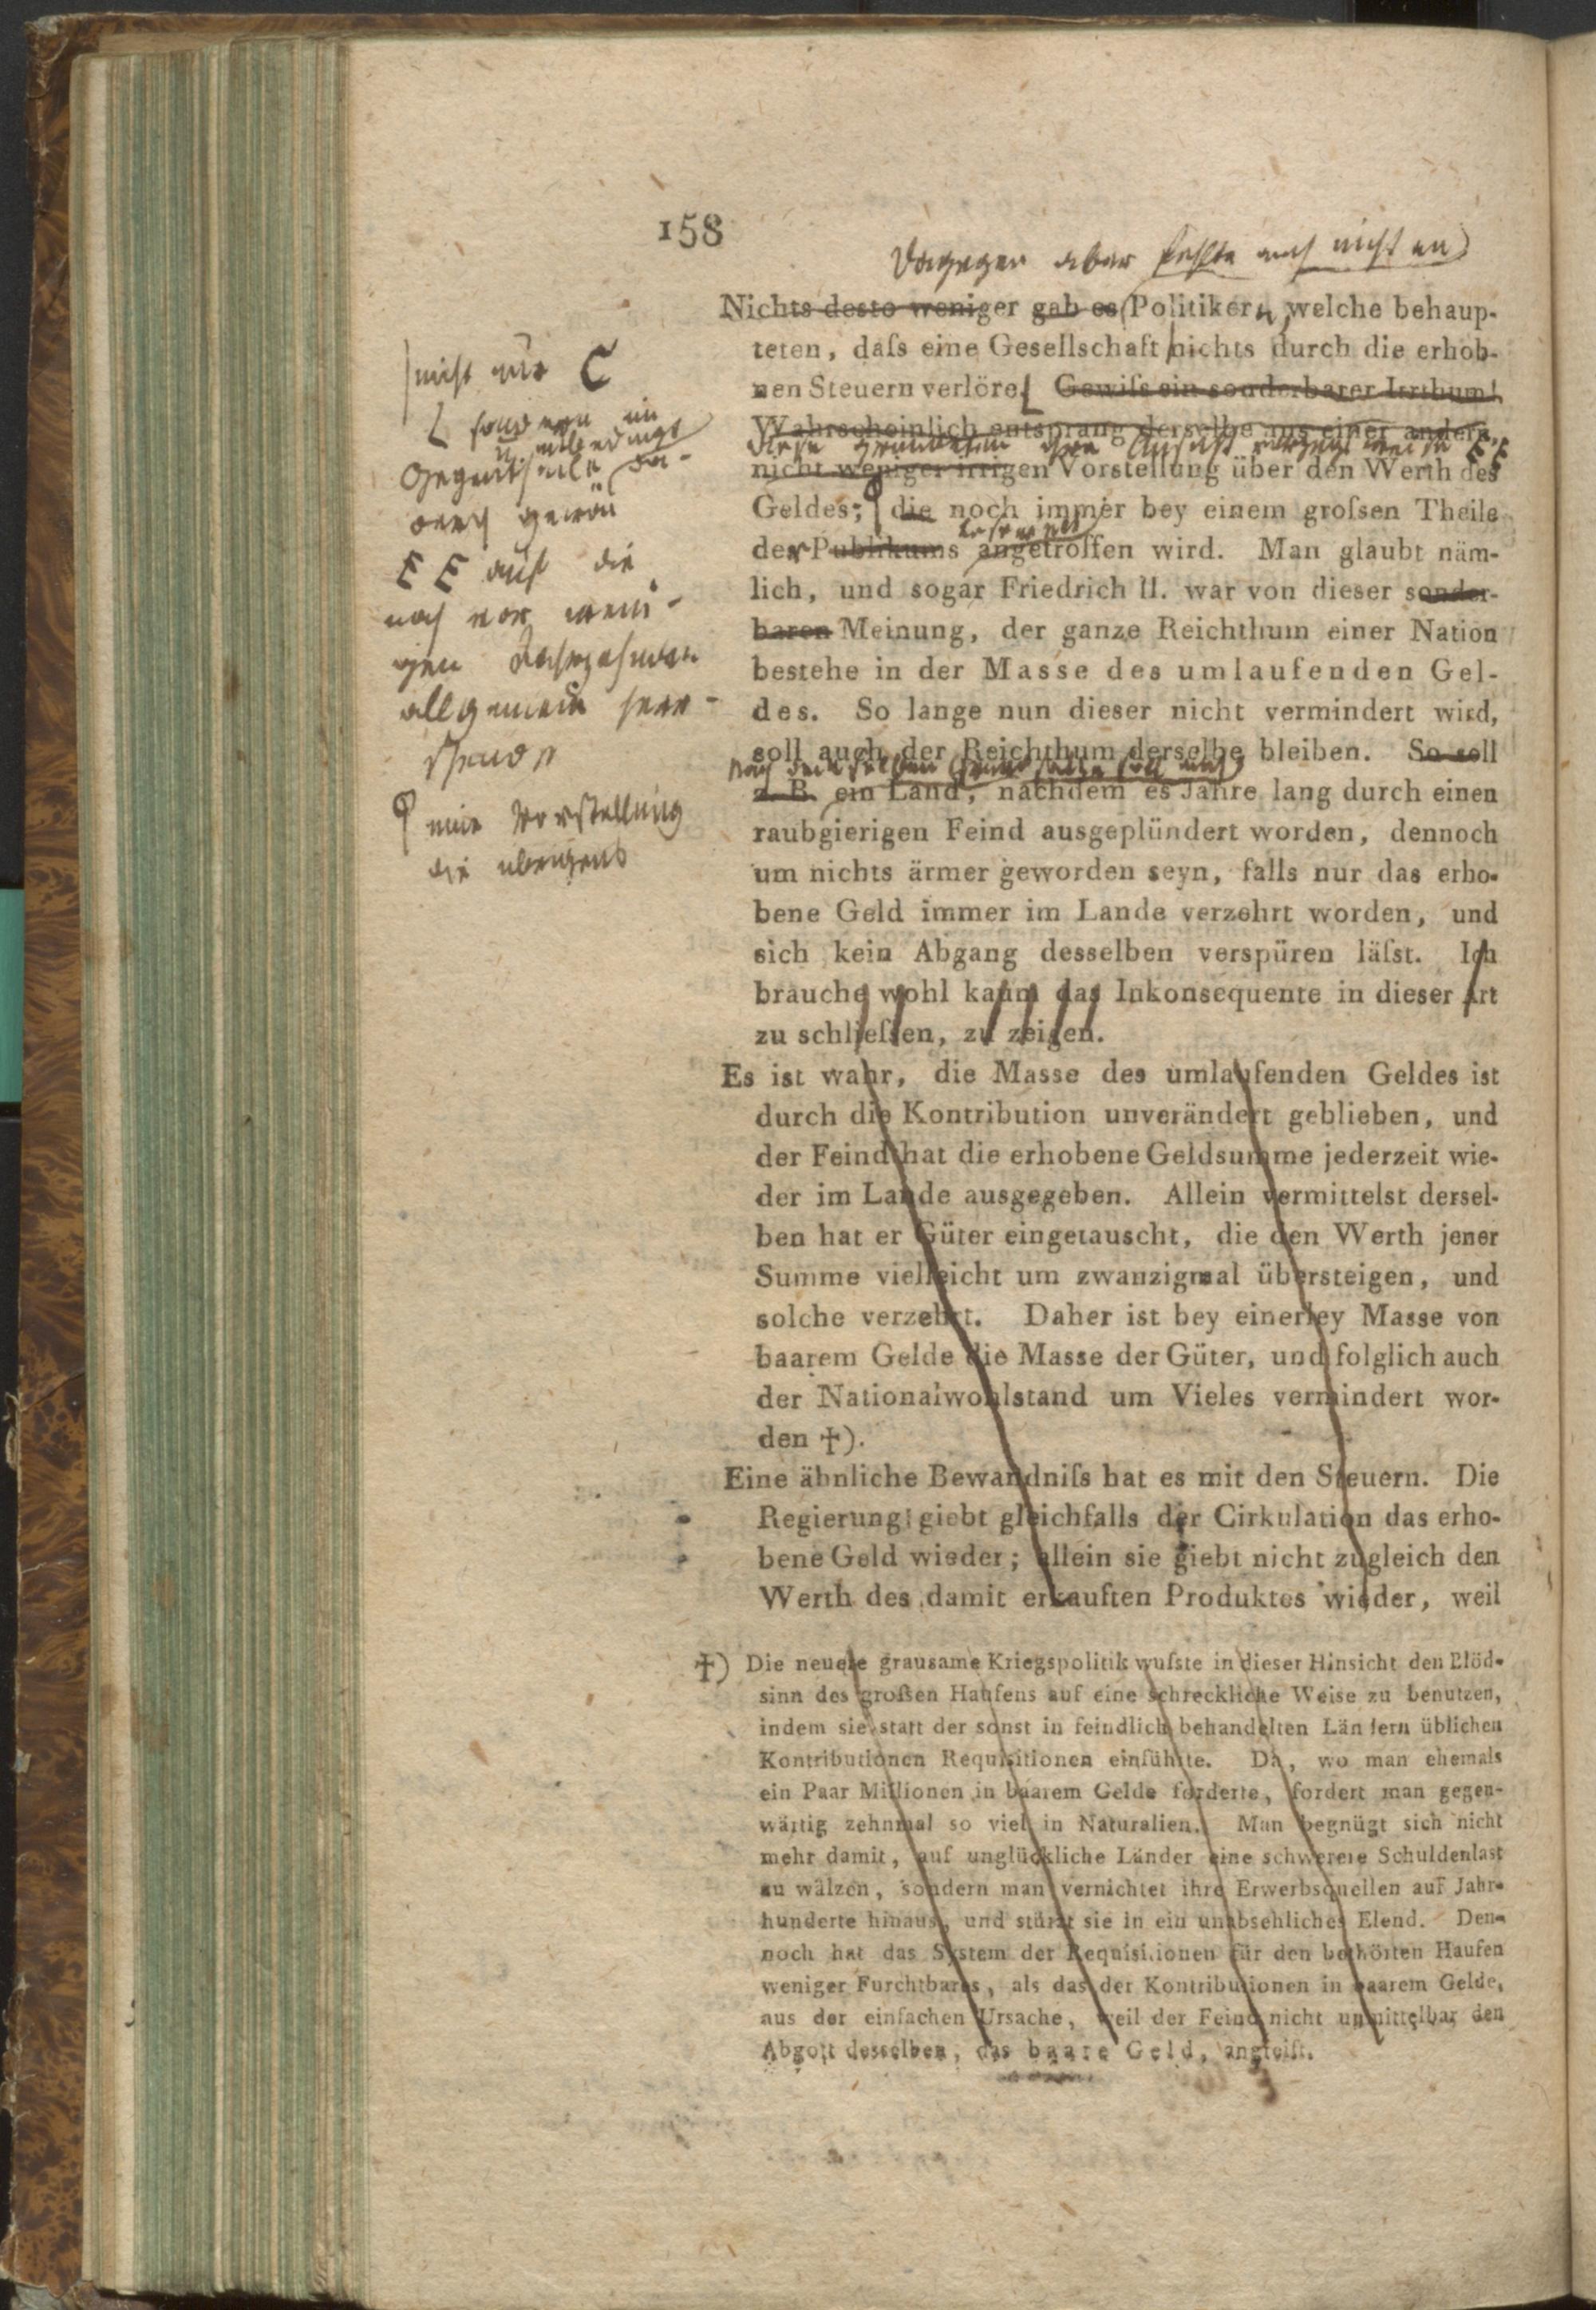 158
Dagegen aber fehlte auch nicht an
Nichts desto weniger gab es Politikern, welche behaup-
teten, daſs eine Gesellschaft nichts durch die erhob-
nen Steuern verlöre. Gewiſs ein sonderbarer Irrthum!
Wahrscheinlich entsprang derselbe aus einer andern,
diese gründeten ihre Ansicht EE
nicht weniger irrigen Vorstellung über den Werth des
Geldes; die noch immer bey einem groſsen Theile
des Publikums angetroffen wird. Man glaubt näm-
lich, und sogar Friedrich II. war von dieser sonder-
baren Meinung, der ganze Reichthum einer Nation
bestehe in der Masse des umlaufenden Gel-
des. So lange nun dieser nicht vermindert wird,
soll auch der Reichthum derselbe bleiben. So soll
nach soll auch
z. B. ein Land, nachdem es Jahre lang durch einen
raubgierigen Feind ausgeplündert worden, dennoch
um nichts ärmer geworden seyn, falls nur das erho-
bene Geld immer im Lande verzehrt worden, und
sich kein Abgang desselben verspüren läſst. Ich
brauche wohl kaum das Inkonsequente in dieser Art
zu schlieſsen, zu zeigen.
Es ist wahr, die Masse des umlaufenden Geldes ist
durch die Kontribution unverändert geblieben, und
der Feind hat die erhobene Geldsumme jederzeit wie-
der im Lande ausgegeben. Allein vermittelst dersel-
ben hat er Güter eingetauscht, die den Werth jener
Summe vielleicht um zwanzigmal übersteigen, und
solche verzehrt. Daher ist bey einerley Masse von
baarem Gelde die Masse der Güter, und folglich auch
der Nationalwohlstand um Vieles vermindert wor-
den †).
Eine ähnliche Bewandniſs hat es mit den Steuern. Die
Regierung giebt gleichfalls der Cirkulation das erho-
bene Geld wieder; allein sie giebt nicht zugleich den
Werth des damit erkauften Produktes wieder, weil
†) Die neuere grausame Kriegspolitik wuſste in dieser Hinsicht den Blöd-
sinn des groſsen Haufens auf eine schreckliche Weise zu benutzen,
indem sie statt der sonst in feindlich behandelten Ländern üblichen
Kontributionen Requisitionen einführte. Da, wo man ehemals
ein Paar Millionen in baarem Gelde forderte, fordert man gegen-
wärtig zehnmal so viel in Naturalien. Man begnügt sich nicht
mehr damit, auf unglückliche Länder eine schwerere Schuldenlast
zu wälzen, sondern man vernichtet ihre Erwerbsquellen auf Jahr-
hunderte hinaus, und stürzt sie in ein unabsehliches Elend. Den-
noch hat das System der Requisitionen für den bethörten Haufen
weniger Furchtbares, als das der Kontributionen in baarem Gelde,
aus der einfachen Ursache, weil der Feind nicht unmittelbar den
Abgott desselben, das baare Geld, angreift.
nicht nur C
sondern im
u. unbedingt
Gegentheile da-
durch gewön
EE auf die
noch vor weni-
gen Jahrzehnden
allgemein herr-
schende
eine Vorstellung
die übrigens